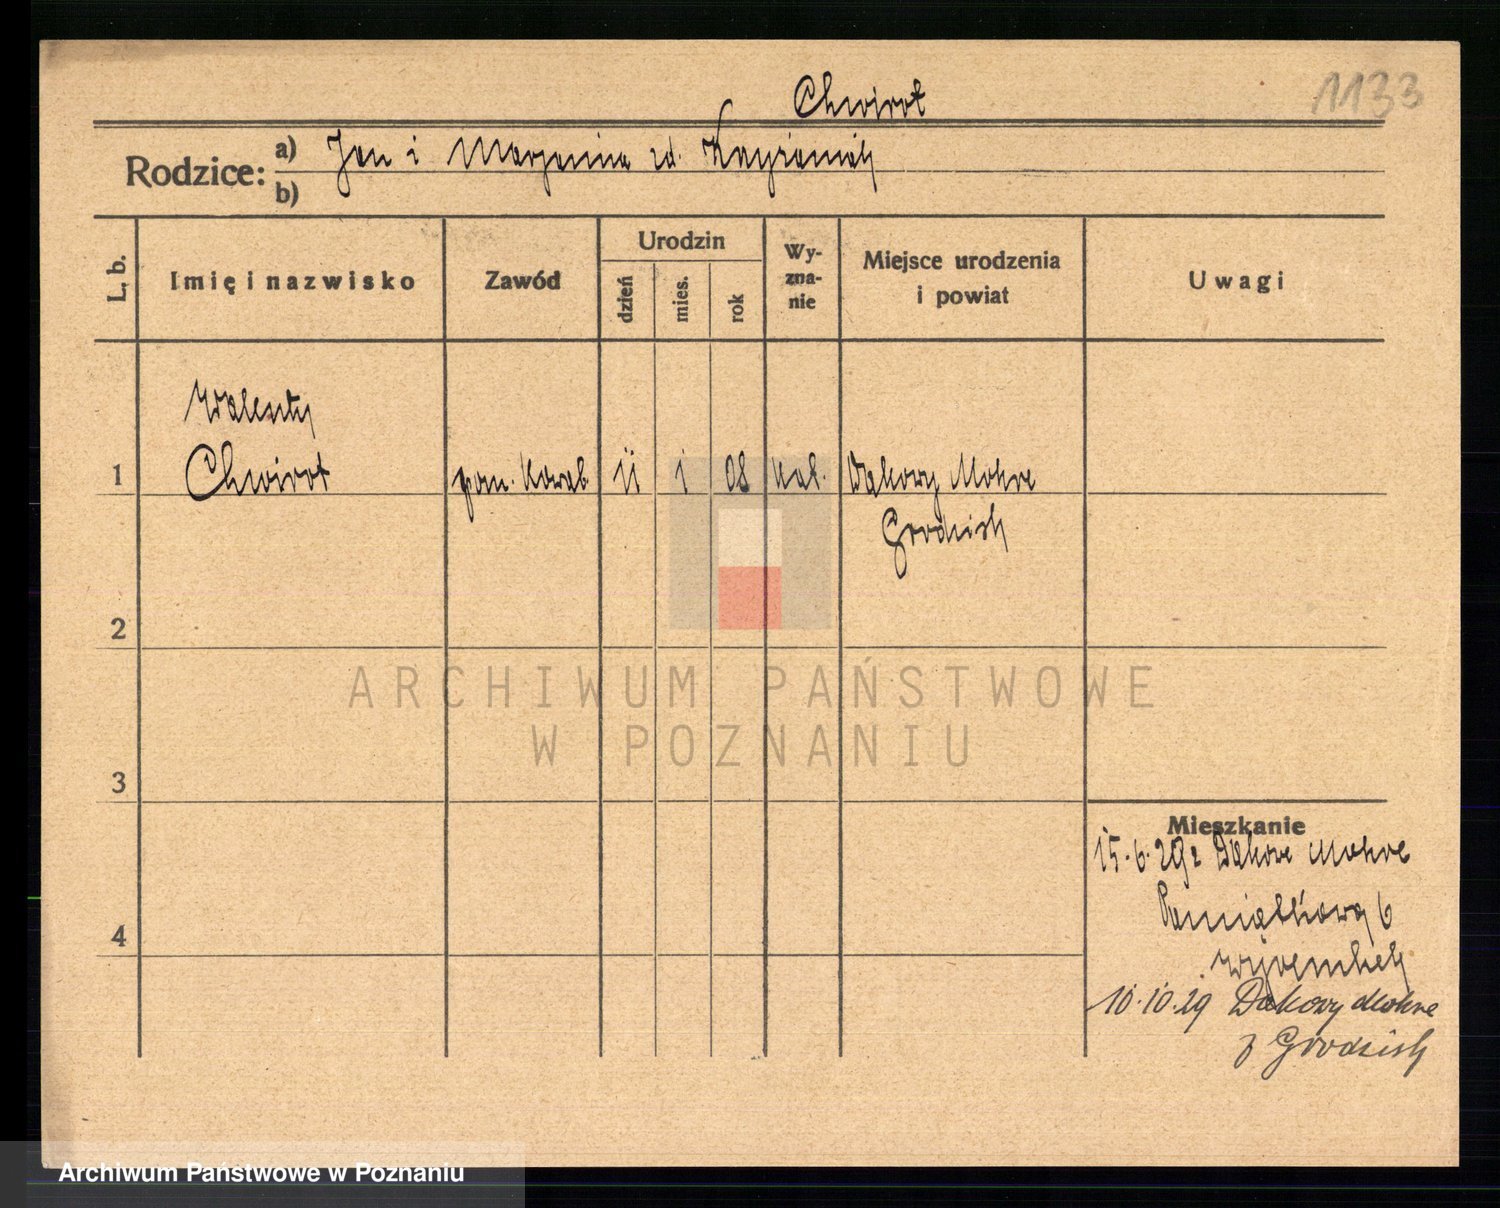 1133
Chwirot
Rodzice: a) Jan i Marjanna zd.
b)
L. b.
Imię i nazwisko
Zawód
Urodzin
dzień
mies.
rok
Wy-
zna-
nie
Miejsce urodzenia
i powiat
Uwagi
Walenty
1 Chwirot pom. Kowal. 11 1 08 kat. Dakowy Mokre
Grodzisk
2
ARCHIWUM PAŃSTWOWE
W POZNANIU
3
Mieszkanie
15.6.29 z Dakowe Mokre
Pamiątkowa 6
4
10.10.29 Dakowy Mokre
p Grodzisk
Archiwum Państwowe w Poznaniu